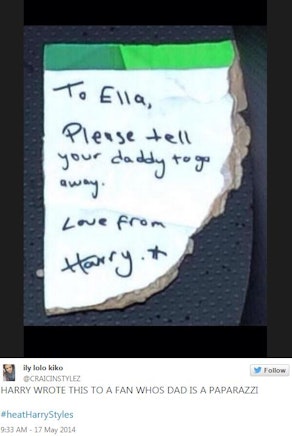 To Ella,
Please tell
your daddy to go
away.
Love from
Harry.*
ily lolo kiko
@CRAICINSTYLEZ
Follow
HARRY WROTE THIS TO A FAN WHOS DAD IS A PAPARAZZI
#heatHarryStyles
9:33 AM - 17 May 2014